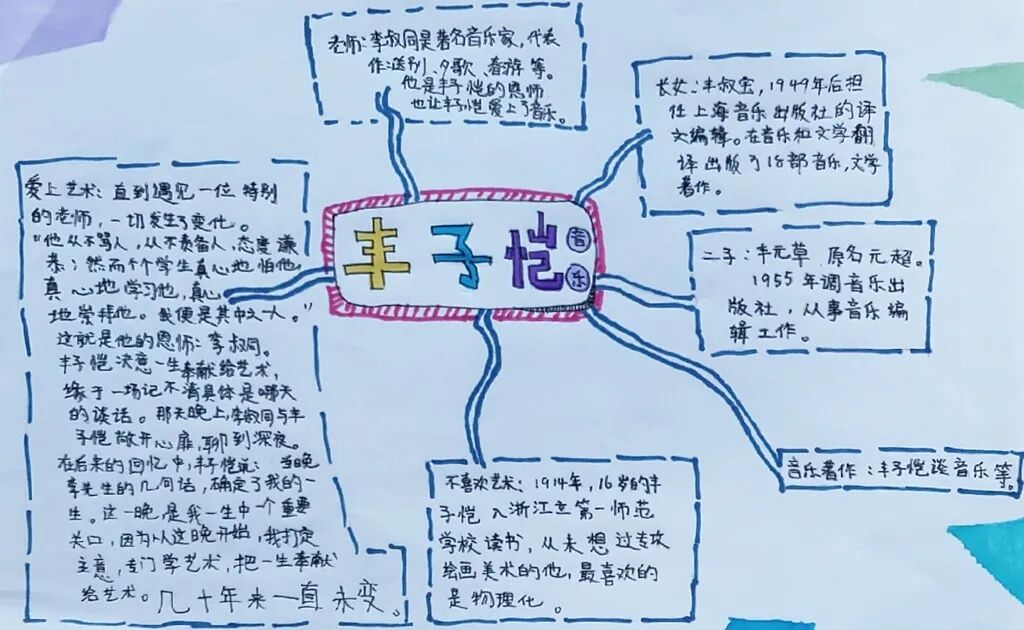 老师:李叔同是著名音乐家,代表
作:送别、夕歌、春游等。
他是丰子恺的恩师
也让丰子恺爱上了音乐。
长女:丰叔宝,1949年后担
任上海音乐出版社的译
文编辑。在音乐和文学翻
译出版了18部音乐,文学
著作。
丰子恺
音
乐
爱上艺术:直到遇见一位特别
的老师,一切发生了变化。
“他从不骂人,从不责备人,态度谦
恭;然而个个学生真心地怕他,
真心地学习他,真心
地崇拜他。我便是其中之一人。”
这就是他的恩师:李叔同。
丰子恺决意一生奉献给艺术,
缘于一场记不清具体是哪天
的谈话。那天晚上,李叔同与丰
子恺敞开心扉,聊到深夜。
在后来的回忆中,丰子恺说:当晚
李先生的几句话,确定了我的一
生。这一晚,是我一生中一个重要
关口,因为从这晚开始,我打定
主意,专门学艺术,把一生奉献
给艺术。几十年来一直未变。
二子:丰元草 原名元超。
1955年调音乐出
版社,从事音乐编
辑工作。
音乐著作:丰子恺谈音乐等。
不喜欢艺术:1914年,16岁的丰
子恺入浙江立第一师范
学校读书,从未想过专攻
绘画美术的他,最喜欢的
是物理化。